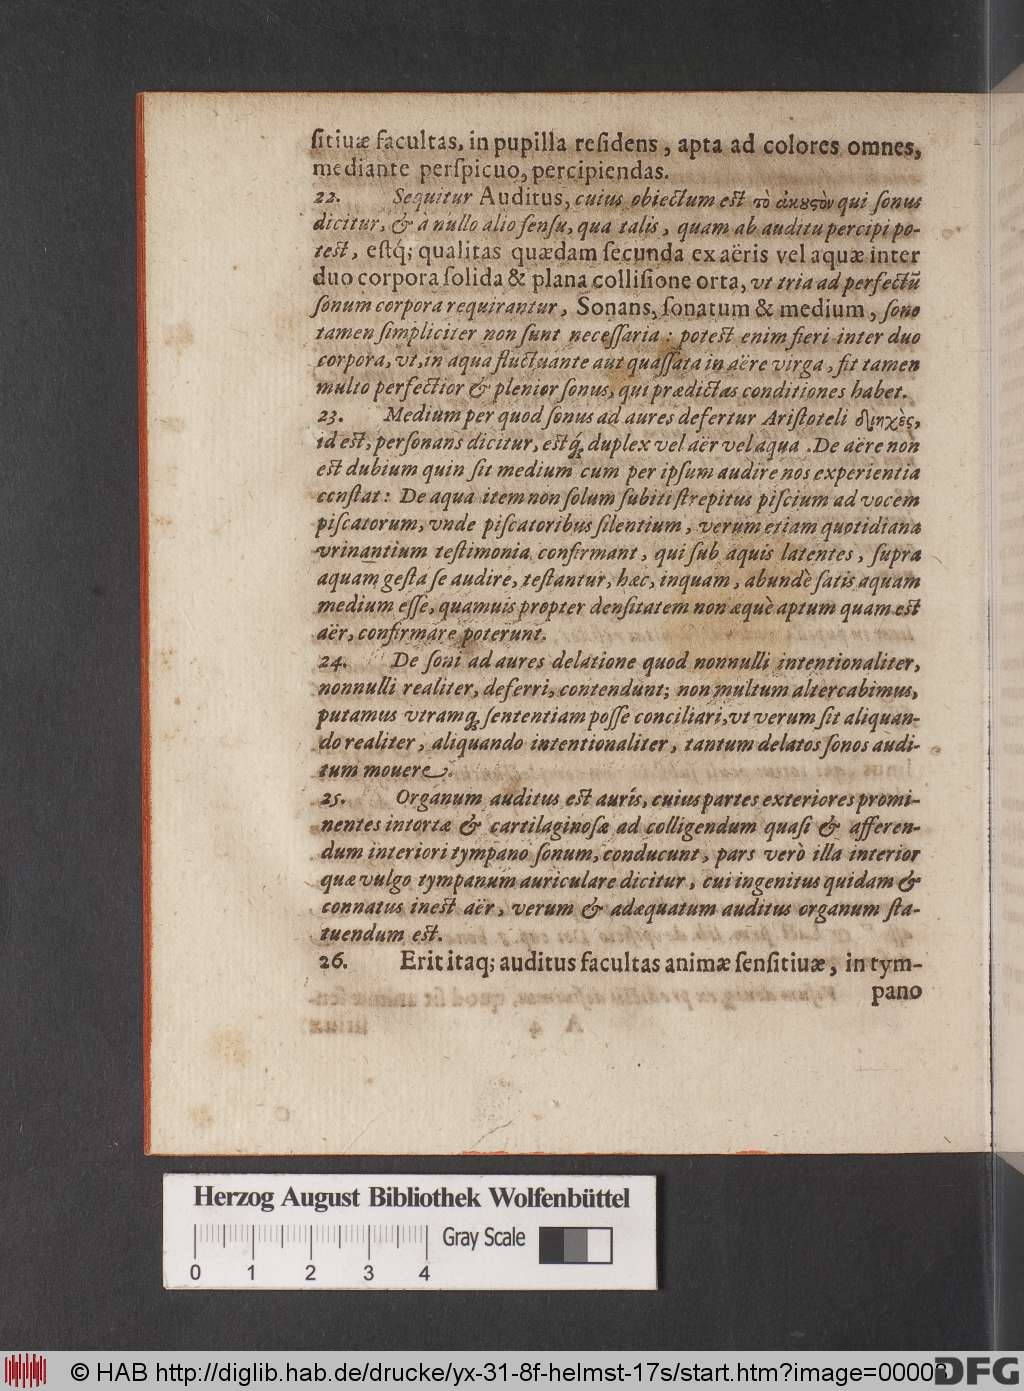 ſitiuæ facultas, in pupilla reſidens, apta ad colores omnes,
mediante perſpicuo, percipiendas.
22. Sequitur Auditus, cuius obiectum est τὸ ἀκȣστὸν qui ſonus
dicitur, & à nullo alio ſenſu, qua talis, quam ab auditu percipi po-
test, eſtq́; qualitas quædam ſecunda ex aëris vel aquæ inter
duo corpora ſolida & plana colliſione orta, vt tria ad perfectũ
ſonum corpora requirantur, Sonans, ſonatum & medium, ſono
tamen ſimpliciter non ſunt neceſſaria: potest enim fieri inter duo
corpora, vt, in aqua fluctuante aut quaſſata in aëre virga, fit tamen
multo perfectior & plenior ſonus, qui prædictas conditiones habet.
23. Medium per quod ſonus ad aures defertur Ariſtoteli διηχὲς,
id est, perſonans dicitur, estq́; duplex vel aër vel aqua. De aëre non
est dubium quin ſit medium cum per ipſum audire nos experientia
conſtat: De aqua item non ſolum ſubiti ſtrepitus piſcium ad vocem
piſcatorum, vnde piſcatoribus ſilentium, verum etiam quotidiana
vrinantium teſtimonia confirmant, qui ſub aquis latentes, ſupra
aquam geſta ſe audire, teſtantur, hæc, inquam, abundè ſatis aquam
medium eſſe, quamuis propter denſitatem non æquè aptum quam est
aër, confirmare poterunt.
24. De ſoni ad aures delatione quod nonnulli intentionaliter,
nonnulli realiter, deferri, contendunt; non multum altercabimus,
putamus vtramq; ſententiam poſſe conciliari, vt verum ſit aliquan-
do realiter, aliquando intentionaliter, tantum delatos ſonos audi-
tum mouere.
25. Organum auditus est auris, cuius partes exteriores promi-
nentes intortæ & cartilaginoſæ ad colligendum quaſi & afferen-
dum interiori tympano ſonum, conducunt, pars verò illa interior
quæ vulgo tympanum auriculare dicitur, cui ingenitus quidam &
connatus inest aër, verum & adæquatum auditus organum ſta-
tuendum est.
26. Erit itaq; auditus facultas animæ ſenſitiuæ, in tym-
pano
Herzog August Bibliothek Wolfenbüttel
Gray Scale
0 1 2 3 4
© HAB http://diglib.hab.de/drucke/yx-31-8f-helmst-17s/start.htm?image=00008
DFG